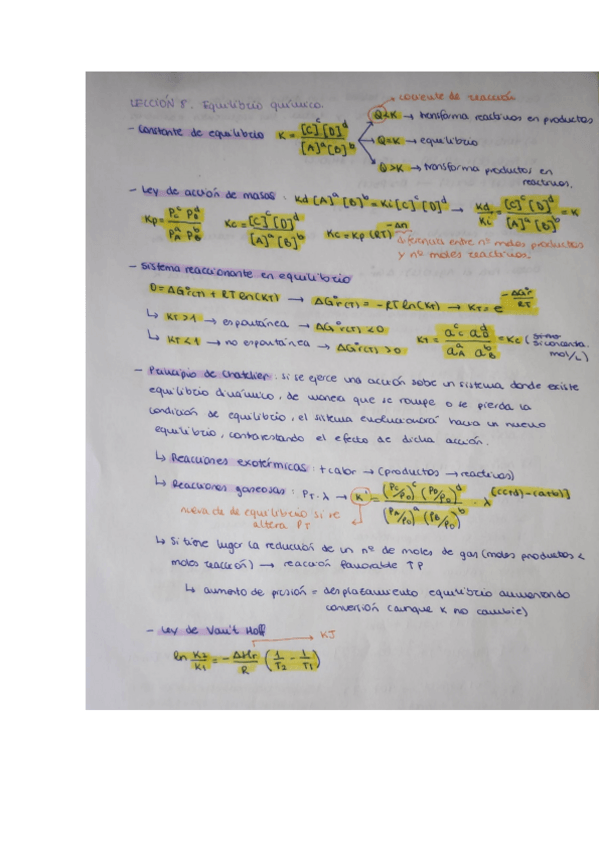 LECCIÓN 8. Equilibrio químico.
cociente de reacción
Q<K → transforma reactivos en productos
- Constante de equilibrio K = [C]^c [D]^d / [A]^a [B]^b
Q=K → equilibrio
Q>K → transforma productos en reactivos.
- Ley de acción de masas: Kd [A]^a [B]^b = Ki [C]^c [D]^d → Kd/Ki = [C]^c [D]^d / [A]^a [B]^b = K
Kp = Pc^c PD^d / PA^a PB^b Kc = [C]^c [D]^d / [A]^a [B]^b Kc = Kp (RT)^-Δn
diferencia entre nº moles productos
y nº moles reactivos.
- Sistema reaccionante en equilibrio
0 = ΔG°r(T) + RT ln(KT) → ΔG°r(T) = -RT ln(KT) → KT = e^(-ΔG°r/RT)
↳ KT > 1 → espontánea → ΔG°r(T) < 0
↳ KT < 1 → no espontánea → ΔG°r(T) > 0
KT = ac^c aD^d / aA^a aB^b = Kc (
mol/L)
- Principio de Chatelier: si se ejerce una acción sobe un sistema donde existe
equilibrio dinámico, de manera que se rompe o se pierda la
condición de equilibrio, el sistema evolucionará hacia un nuevo
equilibrio, contrarestando el efecto de dicha acción.
↳ Reacciones exotérmicas: + calor → (productos → reactivos)
↳ Reacciones gaseosas: PT · λ → K' = (Pc/P0)^c (PD/P0)^d / (PA/P0)^a (PB/P0)^b · λ^[(c+d)-(a+b)]
nueva cte de equilibrio si se
altera PT
↳ Si tiene lugar la reducción de un nº de moles de gas (moles productos <
moles reacción) → reacción favorable ↑P
↳ aumento de presión = desplazamiento equilibrio aumentando
conversión (aunque K no cambie)
- Ley de Van't Hoff
KJ
ln K2/K1 = - ΔHr/R (1/T2 - 1/T1)